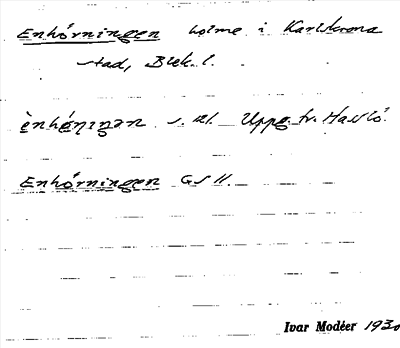 Enhörningen holme i Karlskrona
stad, Blek. l.
Uppg. fr. Hasslö.
Enhörningen GS 11.
Ivar Modéer 1930